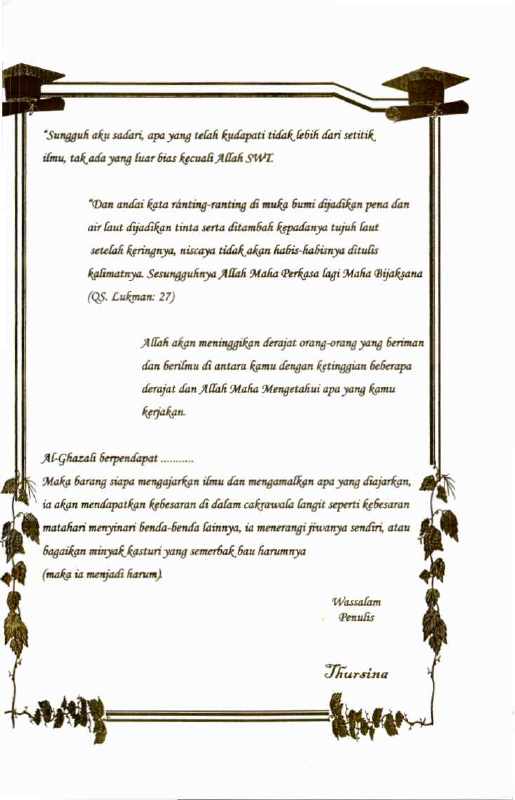 "Sungguh aku sadari, apa yang telah kudapati tidak lebih dari setitik
ilmu, tak ada yang luar bias kecuali Allah SWT.
"Dan andai kata ranting-ranting di muka bumi dijadikan pena dan
air laut dijadikan tinta serta ditambah kepadanya tujuh laut
setelah keringnya, niscaya tidak akan habis-habisnya ditulis
kalimatnya. Sesungguhnya Allah Maha Perkasa lagi Maha Bijaksana
(QS. Lukman: 27)
Allah akan meninggikan derajat orang-orang yang beriman
dan berilmu di antara kamu dengan ketinggian beberapa
derajat dan Allah Maha Mengetahui apa yang kamu
kerjakan.
Al-Ghazali berpendapat ...........
Maka barang siapa mengajarkan ilmu dan mengamalkan apa yang diajarkan,
ia akan mendapatkan kebesaran di dalam cakrawala langit seperti kebesaran
matahari menyinari benda-benda lainnya, ia menerangi jiwanya sendiri, atau
bagaikan minyak kasturi yang semerbak bau harumnya
(maka ia menjadi harum).
Wassalam
Penulis
Thursina